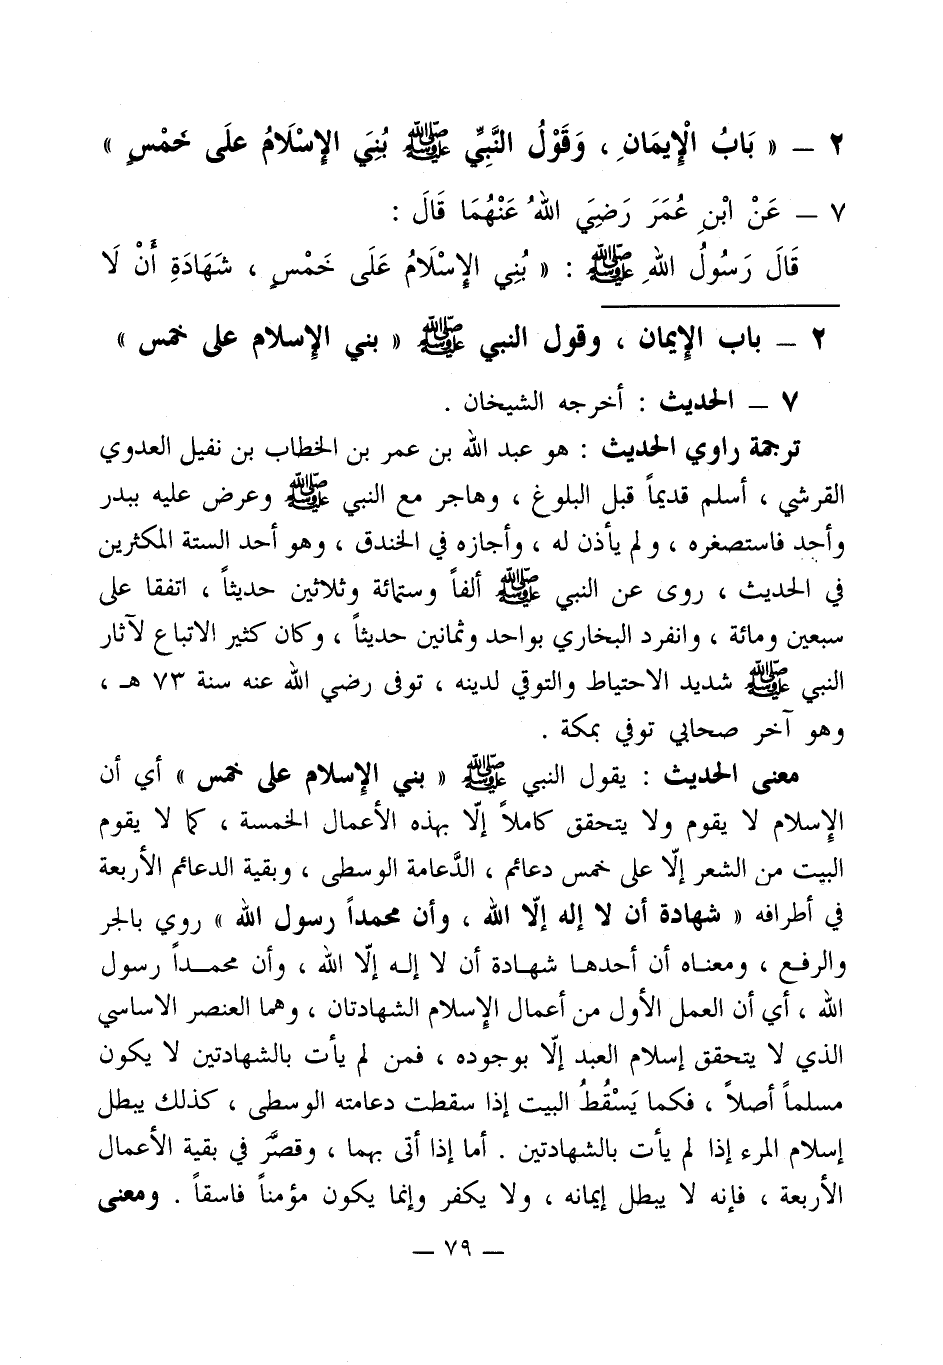 ٢ ــ « بَابُ الْإِيمَانِ ، وَقَوْلُ النَّبِيِّ ﷺ بُنِيَ الإِسْلَامُ علَى خَمْسٍ »
٧ ــ عَنْ ابْنِ عُمَرَ رَضِيَ اللهُ عَنْهُمَا قَالَ :
قَالَ رَسُولُ اللهِ ﷺ : « بُنِي الإِسْلَامُ عَلَى خَمْسٍ ، شَهَادَةِ أَنْ لَا
٢ ــ باب الإيمان ، وقول النبي ﷺ « بني الإسلام على خمس »
٧ ــ الحديث : أخرجه الشيخان .
ترجمة راوي الحديث : هو عبد الله بن عمر بن الخطاب بن نفيل العدوي
القرشي ، أسلم قديماً قبل البلوغ ، وهاجر مع النبي ﷺ وعرض عليه ببدر
وأحد فاستصغره ، ولم يأذن له ، وأجازه في الخندق ، وهو أحد الستة المكثرين
في الحديث ، روى عن النبي ﷺ ألفاً وستمائة وثلاثين حديثاً ، اتفقا على
سبعين ومائة ، وانفرد البخاري بواحد وثمانين حديثاً ، وكان كثير الاتباع لآثار
النبي ﷺ شديد الاحتياط والتوقي لدينه ، توفى رضي الله عنه سنة ٧٣ هـ ،
وهو آخر صحابي توفي بمكة .
معنى الحديث : يقول النبي ﷺ « بني الإسلام على خمس » أي أن
الإسلام لا يقوم ولا يتحقق كاملاً إلّا بهذه الأعمال الخمسة ، كما لا يقوم
البيت من الشعر إلّا على خمس دعائم ، الدَّعامة الوسطى ، وبقية الدعائم الأربعة
في أطرافه « شهادة أن لا إله إلّا الله ، وأن محمداً رسول الله » روي بالجر
والرفع ، ومعناه أن أحدها شهادة أن لا إله إلّا الله ، وأن محمداً رسول
الله ، أي أن العمل الأول من أعمال الإسلام الشهادتان ، وهما العنصر الاساسي
الذي لا يتحقق إسلام العبد إلّا بوجوده ، فمن لم يأت بالشهادتين لا يكون
مسلماً أصلاً ، فكما يَسْقُطُ البيت إذا سقطت دعامته الوسطى ، كذلك يبطل
إسلام المرء إذا لم يأت بالشهادتين . أما إذا أتى بهما ، وقصَّر في بقية الأعمال
الأربعة ، فإنه لا يبطل إيمانه ، ولا يكفر وإنما يكون مؤمناً فاسقاً . ومعنى
ــ ٧٩ ــ